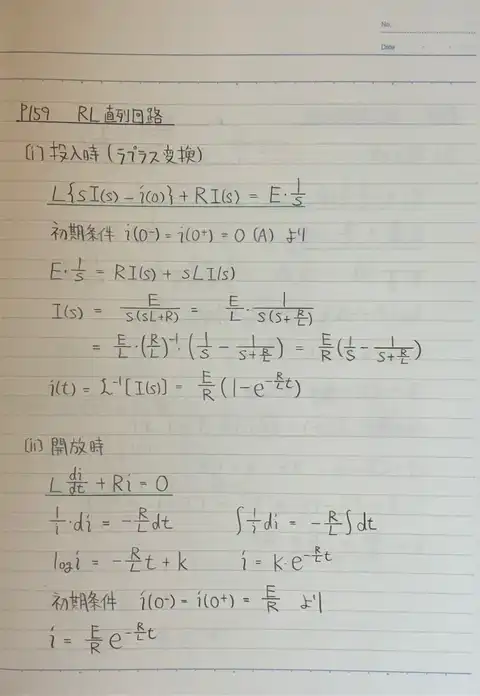 No.
Date
P159 RL直列回路
(i) 投入時 (ラプラス変換)
L{sI(s) - i(0)} + RI(s) = E・1/s
初期条件 i(0-) = i(0+) = 0 (A) より
E・1/s = RI(s) + sLI(s)
I(s) = E/s(sL+R) = E/L・1/s(s+R/L)
= E/L・(R/L)⁻¹・(1/s - 1/s+R/L) = E/R(1/s - 1/s+R/L)
i(t) = L⁻¹[I(s)] = E/R(1-e^-R/Lt)
(ii) 開放時
L di/dt + Ri = 0
1/i・di = -R/L dt ∫1/i di = -R/L∫dt
log i = -R/L t + k i = k・e^-R/Lt
初期条件 i(0-) = i(0+) = E/R より
i = E/R e^-R/Lt